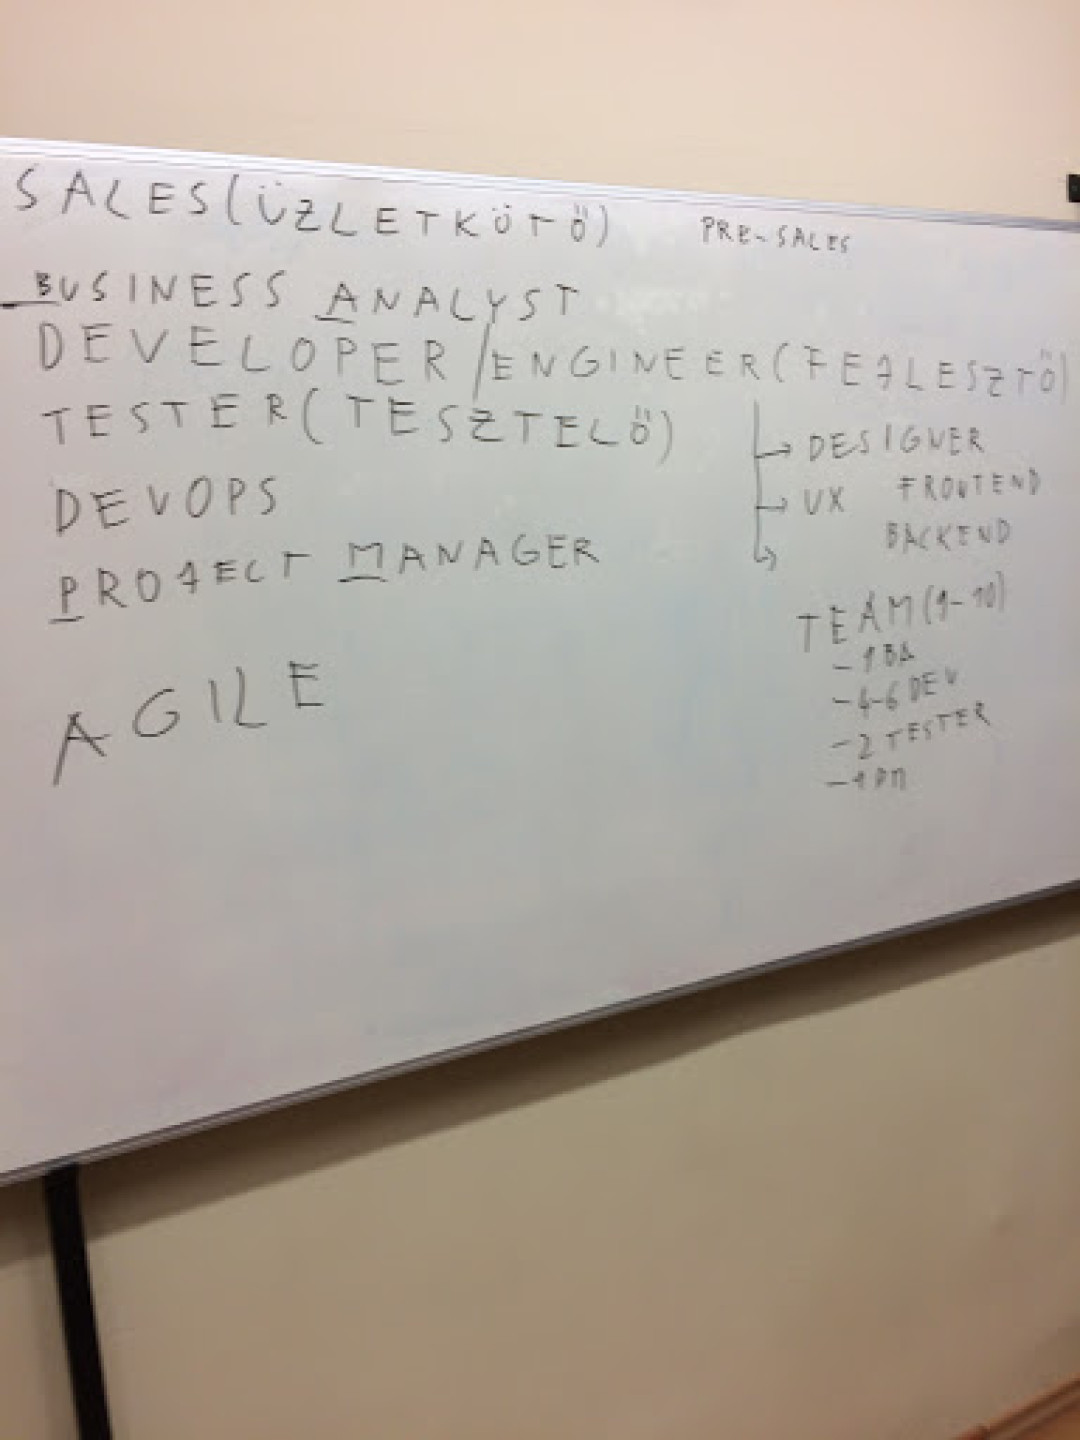 SALES (ÜZLETKÖTŐ) PRE-SALES
BUSINESS ANALYST
DEVELOPER/ENGINEER (FEJLESZTŐ)
TESTER (TESZTELŐ)
→ DESIGNER
→ UX FRONTEND
BACKEND
DEVOPS
PROJECT MANAGER
AGILE
TEAM (9-10)
- 1 BA
- 4-6 DEV
- 2 TESTER
- 1 PM